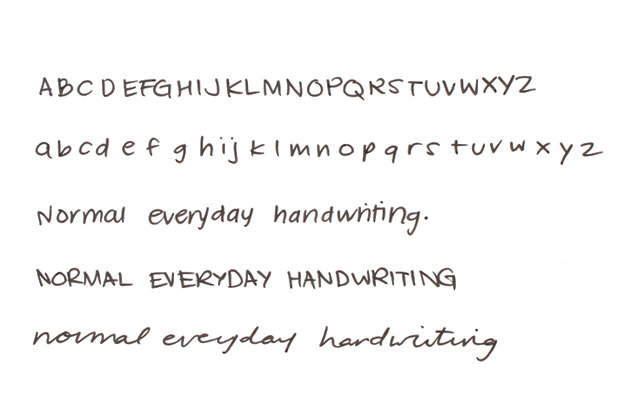 ABCDEFGHIJKLMNOPQRSTUVWXYZ
abcdefghijklmnopqrstuvwxyz
Normal everyday handwriting.
NORMAL EVERYDAY HANDWRITING
normal everyday handwriting